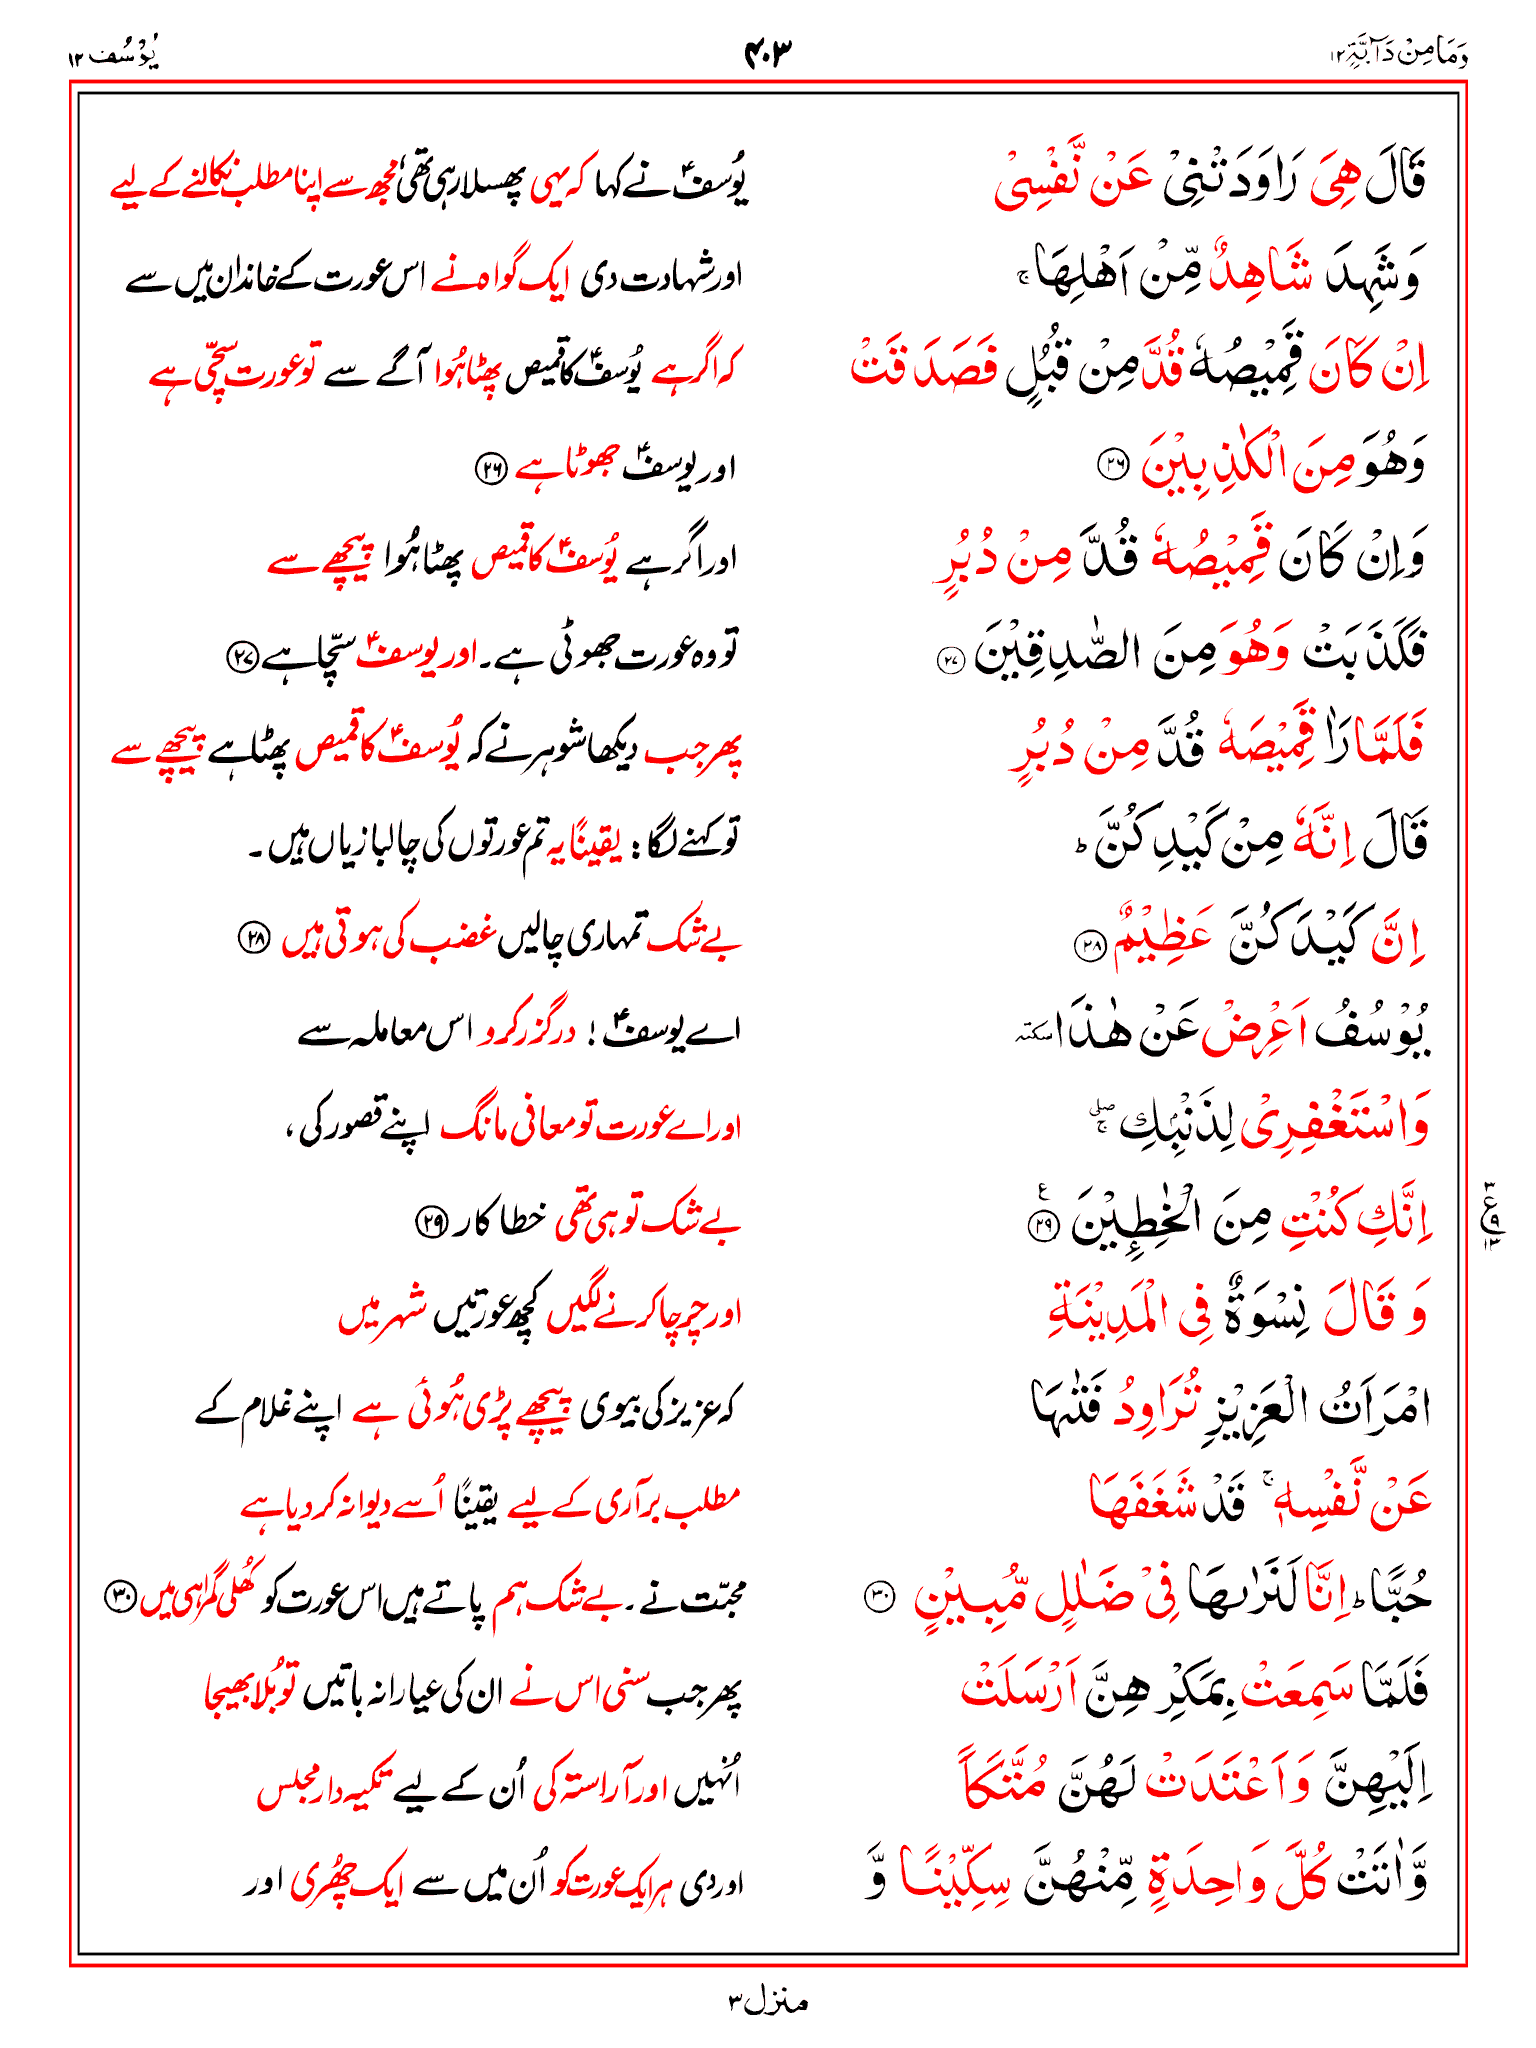 وَمَا مِنْ دَآبَّةٍ ١٢
۴۰۳
یُوْسُف ١٢
قَالَ هِىَ رَاوَدَتْنِىْ عَنْ نَّفْسِىْ
یُوسفؑ نے کہا کہ یہی پھسلا رہی تھی مجھ سے اپنا مطلب نکالنے کے لیے
وَشَهِدَ شَاهِدٌ مِّنْ اَهْلِهَا ۚ
اور شہادت دی ایک گواہ نے اس عورت کے خاندان میں سے
اِنْ كَانَ قَمِيْصُهٗ قُدَّ مِنْ قُبُلٍ فَصَدَقَتْ
کہ اگر ہے یُوسفؑ کا قمیص پھٹا ہُوا آگے سے تو عورت سچّی ہے
وَهُوَ مِنَ الْكٰذِبِيْنَ ۲۶
اور یوسفؑ جھوٹا ہے ۲۶
وَاِنْ كَانَ قَمِيْصُهٗ قُدَّ مِنْ دُبُرٍ
اور اگر ہے یُوسفؑ کا قمیص پھٹا ہُوا پیچھے سے
فَكَذَبَتْ وَهُوَ مِنَ الصّٰدِقِيْنَ ۲۷
تو وہ عورت جھوٹی ہے۔ اور یوسفؑ سچّا ہے ۲۷
فَلَمَّا رَاٰ قَمِيْصَهٗ قُدَّ مِنْ دُبُرٍ
پھر جب دیکھا شوہر نے کہ یُوسفؑ کا قمیص پھٹا ہے پیچھے سے
قَالَ اِنَّهٗ مِنْ كَيْدِكُنَّ ؕ
تو کہنے لگا: یقینًا یہ تم عورتوں کی چالبازیاں ہیں۔
اِنَّ كَيْدَكُنَّ عَظِيْمٌ ۲۸
بے شک تمہاری چالیں غضب کی ہوتی ہیں ۲۸
يُوْسُفُ اَعْرِضْ عَنْ هٰذَا سكتہ
اے یوسفؑ! درگزر کرو اس معاملہ سے
وَاسْتَغْفِرِىْ لِذَنْۢبِكِ ۖۚ
اور اے عورت تو معافی مانگ اپنے قصور کی،
اِنَّكِ كُنْتِ مِنَ الْخٰطِـِٕيْنَ ۲۹ ع
بے شک تو ہی تھی خطا کار ۲۹
۳
ع ۹
۱۳
وَ قَالَ نِسْوَةٌ فِى الْمَدِيْنَةِ
اور چرچا کرنے لگیں کچھ عورتیں شہر میں
امْرَاَتُ الْعَزِيْزِ تُرَاوِدُ فَتٰىهَا
کہ عزیز کی بیوی پیچھے پڑی ہُوئی ہے اپنے غلام کے
عَنْ نَّفْسِهٖ ۚ قَدْ شَغَفَهَا
مطلب برآری کے لیے یقینًا اُسے دیوانہ کر دیا ہے
حُبًّا ؕ اِنَّا لَنَرٰىهَا فِىْ ضَلٰلٍ مُّبِيْنٍ ۳۰
محبّت نے۔ بے شک ہم پاتے ہیں اس عورت کو کھُلی گمراہی میں ۳۰
فَلَمَّا سَمِعَتْ بِمَكْرِهِنَّ اَرْسَلَتْ
پھر جب سنی اس نے ان کی عیارانہ باتیں تو بُلا بھیجا
اِلَيْهِنَّ وَاَعْتَدَتْ لَهُنَّ مُتَّكَاً
اُنہیں اور آراستہ کی اُن کے لیے تکیہ دار مجلس
وَّاٰتَتْ كُلَّ وَاحِدَةٍ مِّنْهُنَّ سِكِّيْنًا وَّ
اور دی ہر ایک عورت کو اُن میں سے ایک چھُری اور
منزل ۳